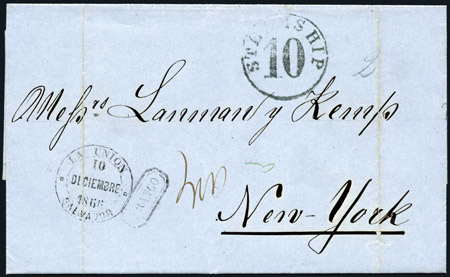 STEAMSHIP
10
Messrs Lanman y Kemp
LA UNION
10
DICIEMBRE
1866
SALVADOR
New-York